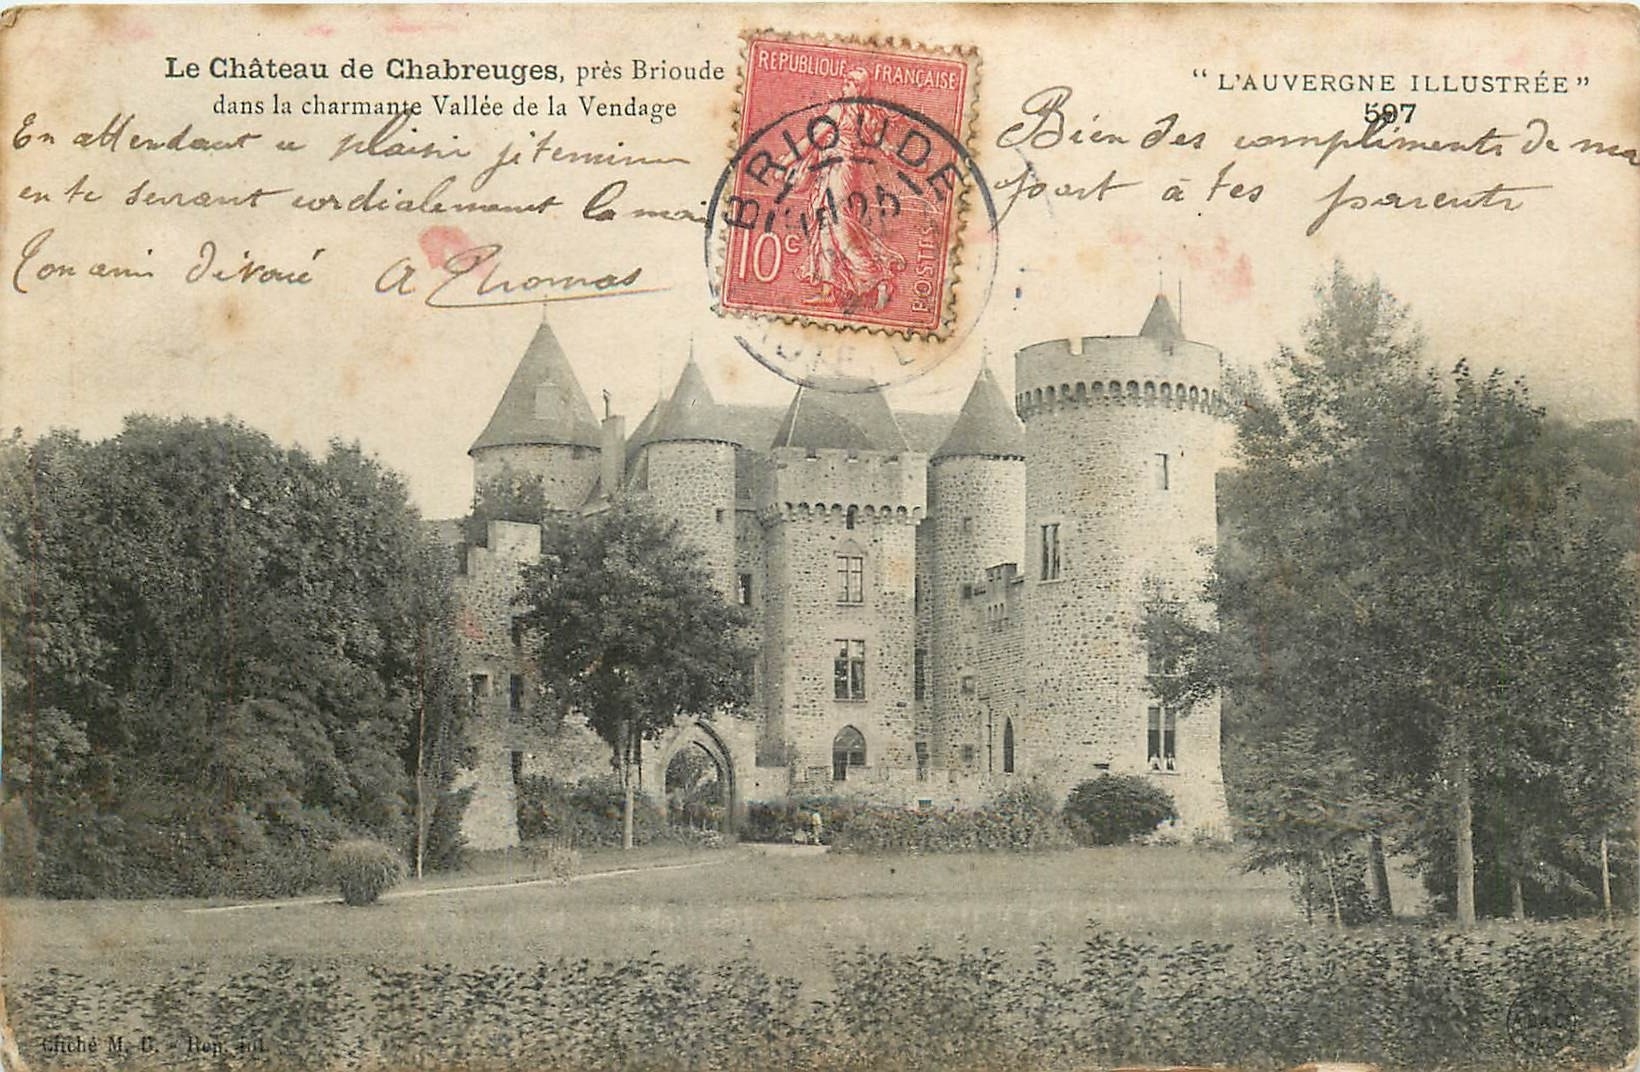 Le Château de Chabreuges, près Brioude
dans la charmante Vallée de la Vendage
"L'AUVERGNE ILLUSTRÉE"
597
REPUBLIQUE FRANÇAISE
10c
POSTES
BRIOUDE
En attendant ce plaisir je termine
en te serrant cordialement la main
Ton ami dévoué A Thomas
Bien des compliments de ma
part à tes parents
Cliché M. B. - Rep. int.